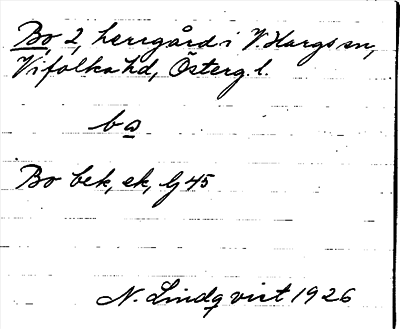 Bo, 2, herrgård i V. Hargs sn,
Vifolka hd, Österg. l.
bo
Bo bek, ek, Lj 45
N. Lindqvist 1926